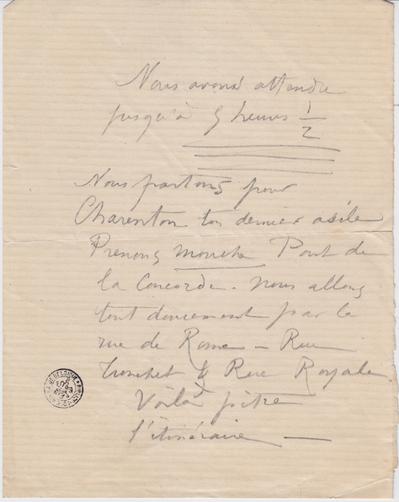 Nous avons attendu
jusqu'à 5 heures 1/2
Nous partons pour
Charenton ton dernier asile
Prenons mouche Pont de
la Concorde. nous allons
tout doucement par la
rue de Rome – Rue
Tronchet & Rue Royale
Voilà pitre
l'itinéraire —